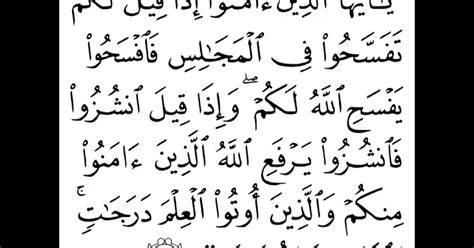 يَٰٓأَيُّهَا ٱلَّذِينَ ءَامَنُوٓا۟ إِذَا قِيلَ لَكُمْ
تَفَسَّحُوا۟ فِى ٱلْمَجَٰلِسِ فَٱفْسَحُوا۟
يَفْسَحِ ٱللَّهُ لَكُمْ ۖ وَإِذَا قِيلَ ٱنشُزُوا۟
فَٱنشُزُوا۟ يَرْفَعِ ٱللَّهُ ٱلَّذِينَ ءَامَنُوا۟
مِنكُمْ وَٱلَّذِينَ أُوتُوا۟ ٱلْعِلْمَ دَرَجَٰتٍ ۚ